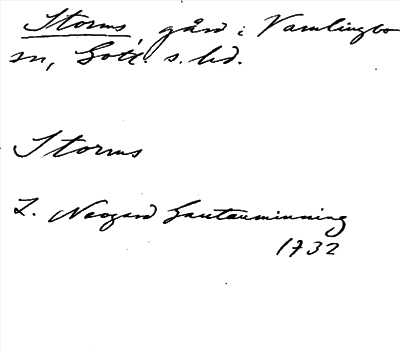 Storms, gård i Vamlingbo
sn, Gotl. s. hd.
Storms
L. Neogard Gautauminning
1732